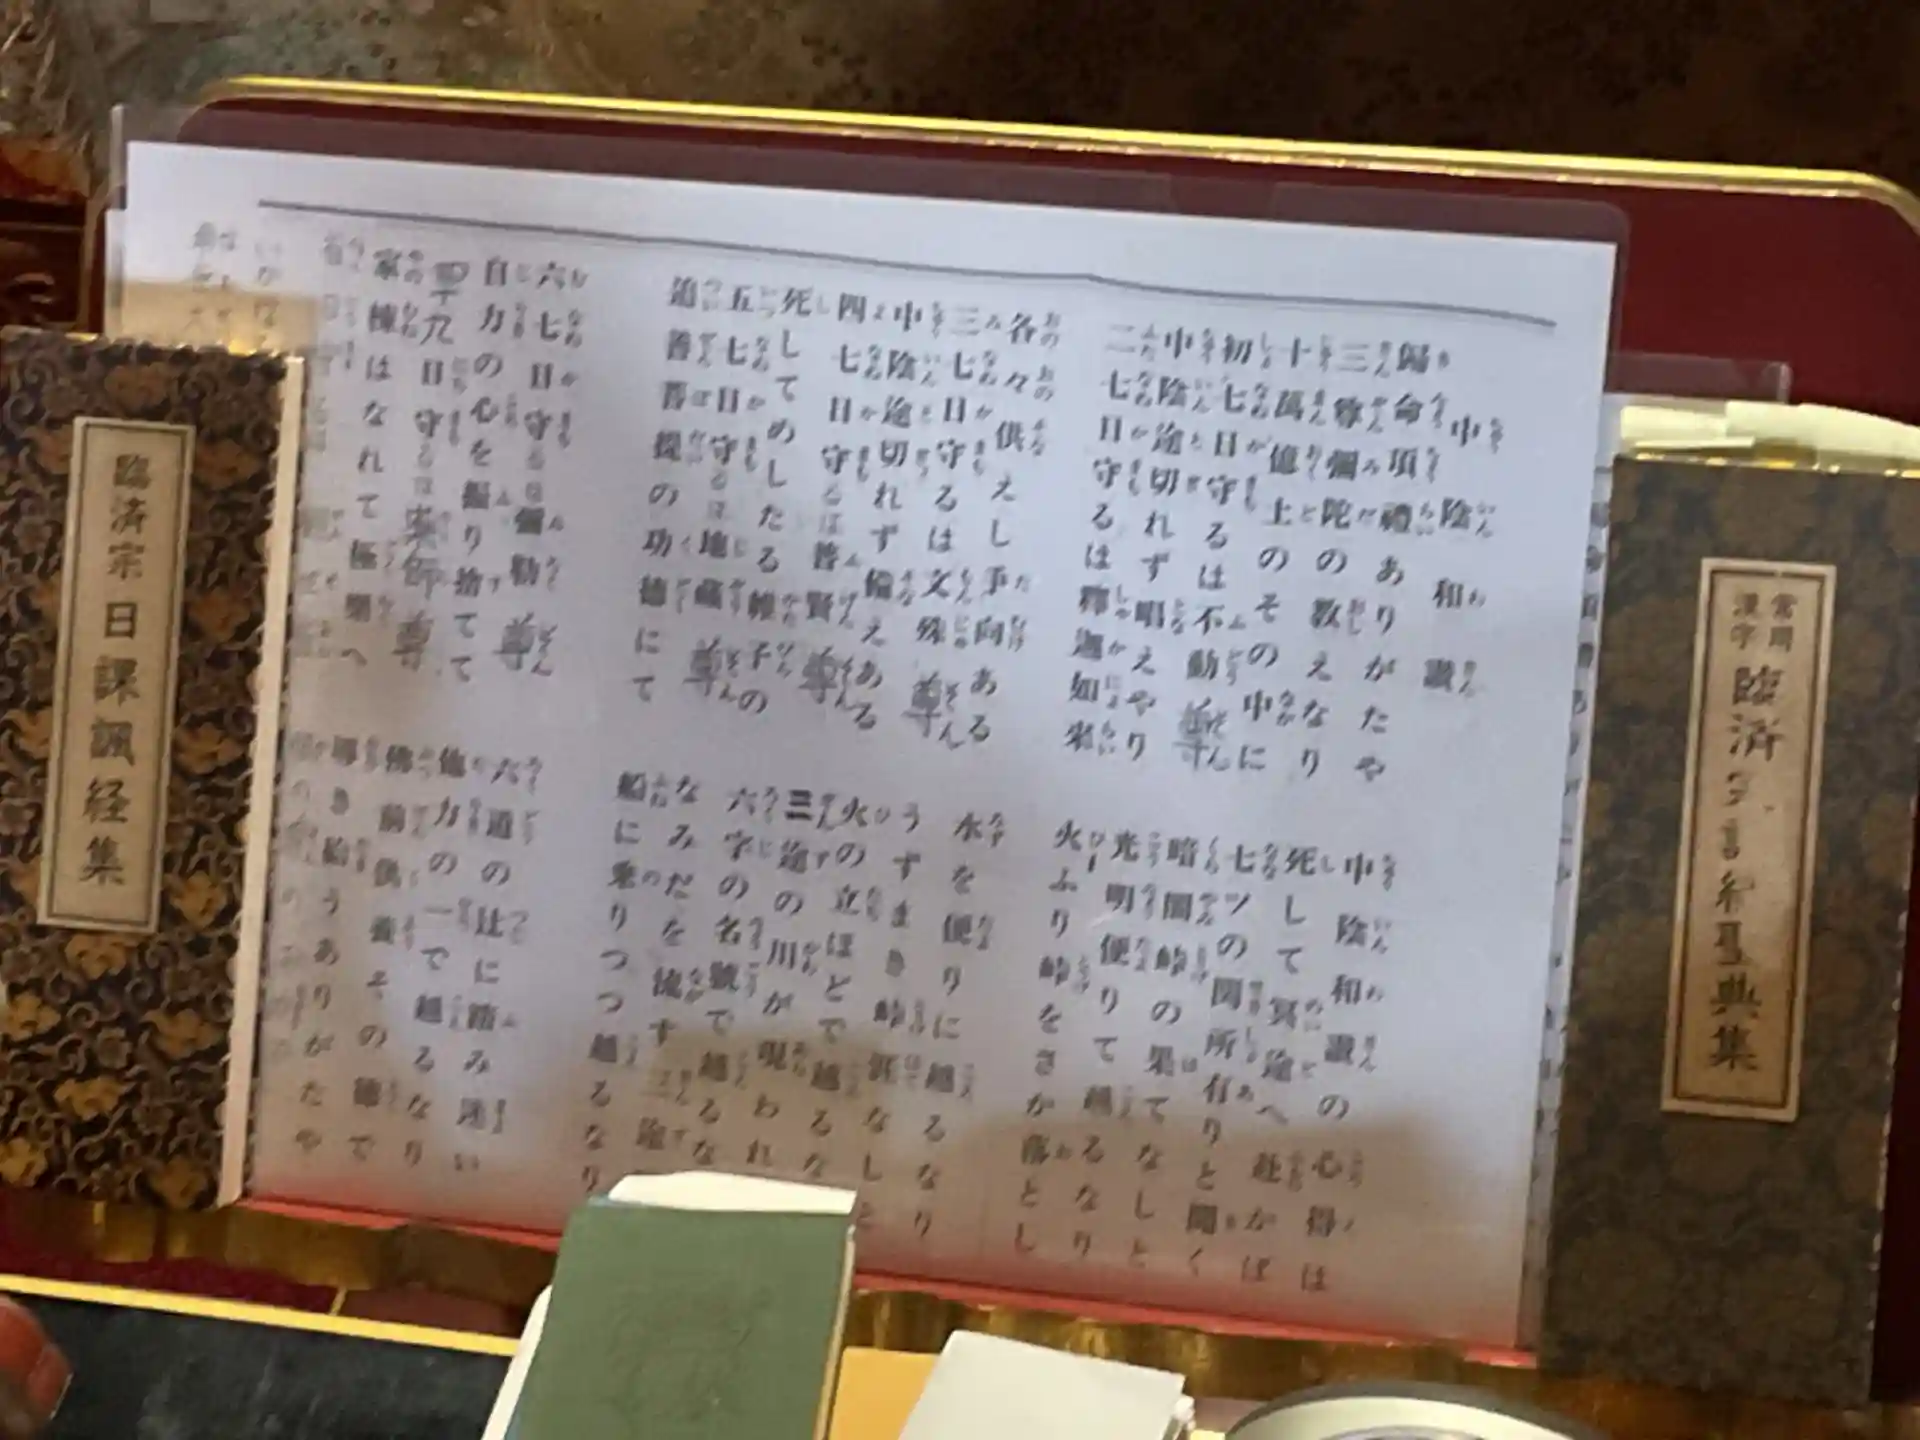 中陰和讃
歸命頂禮ありがたや
三尊彌陀の教えなり
十萬億土のその中に
初七日守るは不動尊
中陰途切れず唱えやり
二七日守るは釋迦如来
各々供えし手向ある
三七日守るは文殊尊
中陰途切れず備えある
四七日守るは普賢尊
死してめしたる帷子の
五七日守るは地蔵尊
追善菩提の功徳にて
六七日守るは彌勒尊
自力の心を振り捨てて
四十九日守るは薬師尊
家棟はなれて極樂へ
中陰和讃の心得は
死して冥途へ赴かば
七ツの関所有りと聞く
暗闇峠の果てなしと
光明便りて越るなり
火ふり峠をさか落とし
水を便りに越るなり
うずまき峠涯なしと
火の立ほどで越るな
三途の川が現われ
六字の名號で越るな
なみだを流す三途
船に乗りつつ越るなり
六道の辻に踏み迷い
他力の一で越るなり
佛前供養その徳で
導き給うありがたや
臨済宗日課諷経集
常用
漢字
臨済
聖典集